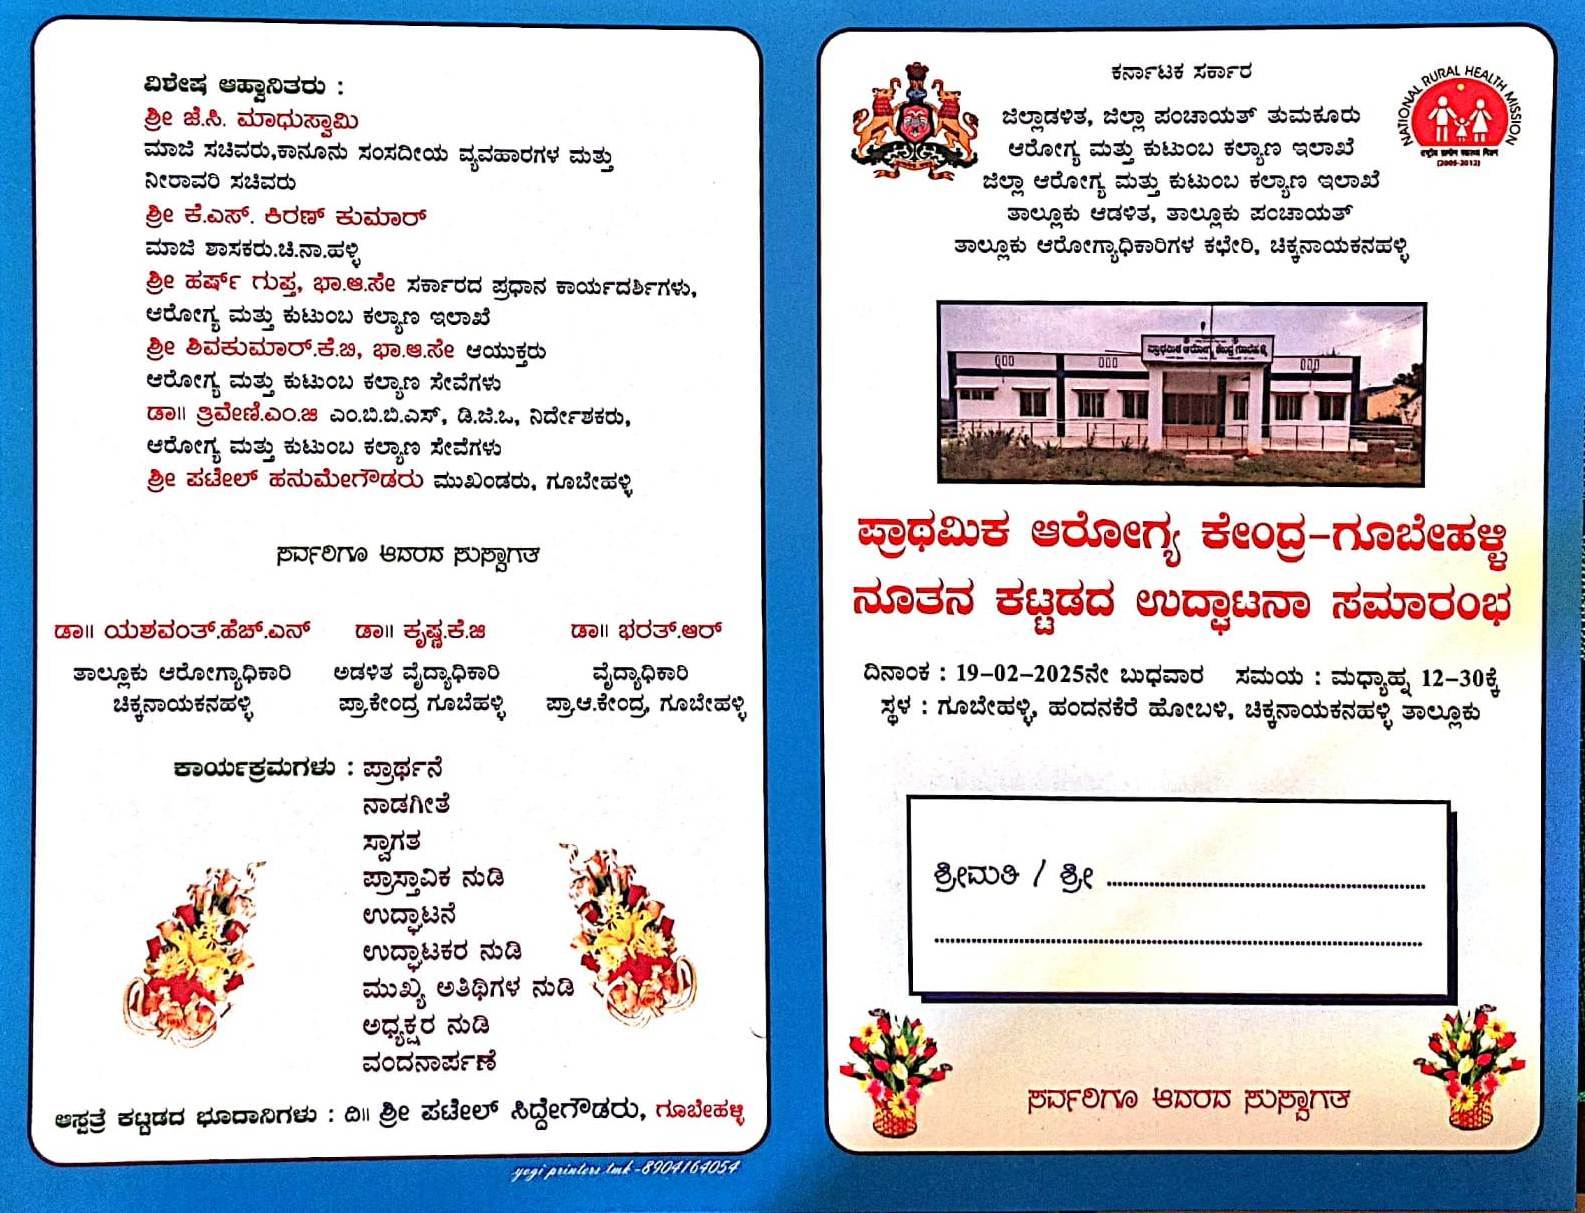 ವಿಶೇಷ ಆಹ್ವಾನಿತರು :
ಶ್ರೀ ಜೆ.ಸಿ. ಮಾಧುಸ್ವಾಮಿ
ಮಾಜಿ ಸಚಿವರು,ಕಾನೂನು ಸಂಸದೀಯ ವ್ಯವಹಾರಗಳ ಮತ್ತು
ನೀರಾವರಿ ಸಚಿವರು
ಶ್ರೀ ಕೆ.ಎಸ್. ಕಿರಣ್ ಕುಮಾರ್
ಮಾಜಿ ಶಾಸಕರು.ಚಿ.ನಾ.ಹಳ್ಳಿ
ಶ್ರೀ ಹರ್ಷ್ ಗುಪ್ತ, ಭಾ.ಆ.ಸೇ ಸರ್ಕಾರದ ಪ್ರಧಾನ ಕಾರ್ಯದರ್ಶಿಗಳು,
ಆರೋಗ್ಯ ಮತ್ತು ಕುಟುಂಬ ಕಲ್ಯಾಣ ಇಲಾಖೆ
ಶ್ರೀ ಶಿವಕುಮಾರ್.ಕೆ.ಬಿ, ಭಾ.ಆ.ಸೇ ಆಯುಕ್ತರು
ಆರೋಗ್ಯ ಮತ್ತು ಕುಟುಂಬ ಕಲ್ಯಾಣ ಸೇವೆಗಳು
ಡಾ|| ತ್ರಿವೇಣಿ.ಎಂ.ಜಿ ಎಂ.ಬಿ.ಬಿ.ಎಸ್, ಡಿ.ಜಿ.ಒ, ನಿರ್ದೇಶಕರು,
ಆರೋಗ್ಯ ಮತ್ತು ಕುಟುಂಬ ಕಲ್ಯಾಣ ಸೇವೆಗಳು
ಶ್ರೀ ಪಟೇಲ್ ಹನುಮೇಗೌಡರು ಮುಖಂಡರು, ಗೂಬೇಹಳ್ಳಿ
ಸರ್ವರಿಗೂ ಆದರದ ಸುಸ್ವಾಗತ
ಡಾ|| ಯಶವಂತ್.ಹೆಚ್.ಎನ್ ಡಾ|| ಕೃಷ್ಣ.ಕೆ.ಜಿ ಡಾ|| ಭರತ್.ಆರ್
ತಾಲ್ಲೂಕು ಆರೋಗ್ಯಾಧಿಕಾರಿ ಅಡಳಿತ ವೈದ್ಯಾಧಿಕಾರಿ ವೈದ್ಯಾಧಿಕಾರಿ
ಚಿಕ್ಕನಾಯಕನಹಳ್ಳಿ ಪ್ರಾ.ಕೇಂದ್ರ ಗೂಬೆಹಳ್ಳಿ ಪ್ರಾ.ಆ.ಕೇಂದ್ರ, ಗೂಬೇಹಳ್ಳಿ
ಕಾರ್ಯಕ್ರಮಗಳು : ಪ್ರಾರ್ಥನೆ
ನಾಡಗೀತೆ
ಸ್ವಾಗತ
ಪ್ರಾಸ್ತಾವಿಕ ನುಡಿ
ಉದ್ಘಾಟನೆ
ಉದ್ಘಾಟಕರ ನುಡಿ
ಮುಖ್ಯ ಅತಿಥಿಗಳ ನುಡಿ
ಅಧ್ಯಕ್ಷರ ನುಡಿ
ವಂದನಾರ್ಪಣೆ
ಆಸ್ಪತ್ರೆ ಕಟ್ಟಡದ ಭೂದಾನಿಗಳು : ದಿ|| ಶ್ರೀ ಪಟೇಲ್ ಸಿದ್ದೇಗೌಡರು, ಗೂಬೇಹಳ್ಳಿ
yogi printers tmk -8904164054
ಕರ್ನಾಟಕ ಸರ್ಕಾರ
ಜಿಲ್ಲಾಡಳಿತ, ಜಿಲ್ಲಾ ಪಂಚಾಯತ್ ತುಮಕೂರು
ಆರೋಗ್ಯ ಮತ್ತು ಕುಟುಂಬ ಕಲ್ಯಾಣ ಇಲಾಖೆ
ಜಿಲ್ಲಾ ಆರೋಗ್ಯ ಮತ್ತು ಕುಟುಂಬ ಕಲ್ಯಾಣ ಇಲಾಖೆ
ತಾಲ್ಲೂಕು ಆಡಳಿತ, ತಾಲ್ಲೂಕು ಪಂಚಾಯತ್
ತಾಲ್ಲೂಕು ಆರೋಗ್ಯಾಧಿಕಾರಿಗಳ ಕಛೇರಿ, ಚಿಕ್ಕನಾಯಕನಹಳ್ಳಿ
NATIONAL RURAL HEALTH MISSION
राष्ट्रीय ग्रामीण स्वास्थ्य मिशन
(2005-2012)
ಪ್ರಾಥಮಿಕ ಆರೋಗ್ಯ ಕೇಂದ್ರ ಗೂಬೇಹಳ್ಳಿ
ಪ್ರಾಥಮಿಕ ಆರೋಗ್ಯ ಕೇಂದ್ರ-ಗೂಬೇಹಳ್ಳಿ
ನೂತನ ಕಟ್ಟಡದ ಉದ್ಘಾಟನಾ ಸಮಾರಂಭ
ದಿನಾಂಕ : 19-02-2025ನೇ ಬುಧವಾರ ಸಮಯ : ಮಧ್ಯಾಹ್ನ 12-30ಕ್ಕೆ
ಸ್ಥಳ : ಗೂಬೇಹಳ್ಳಿ, ಹಂದನಕೆರೆ ಹೋಬಳಿ, ಚಿಕ್ಕನಾಯಕನಹಳ್ಳಿ ತಾಲ್ಲೂಕು
ಶ್ರೀಮತಿ / ಶ್ರೀ
ಸರ್ವರಿಗೂ ಆದರದ ಸುಸ್ವಾಗತ